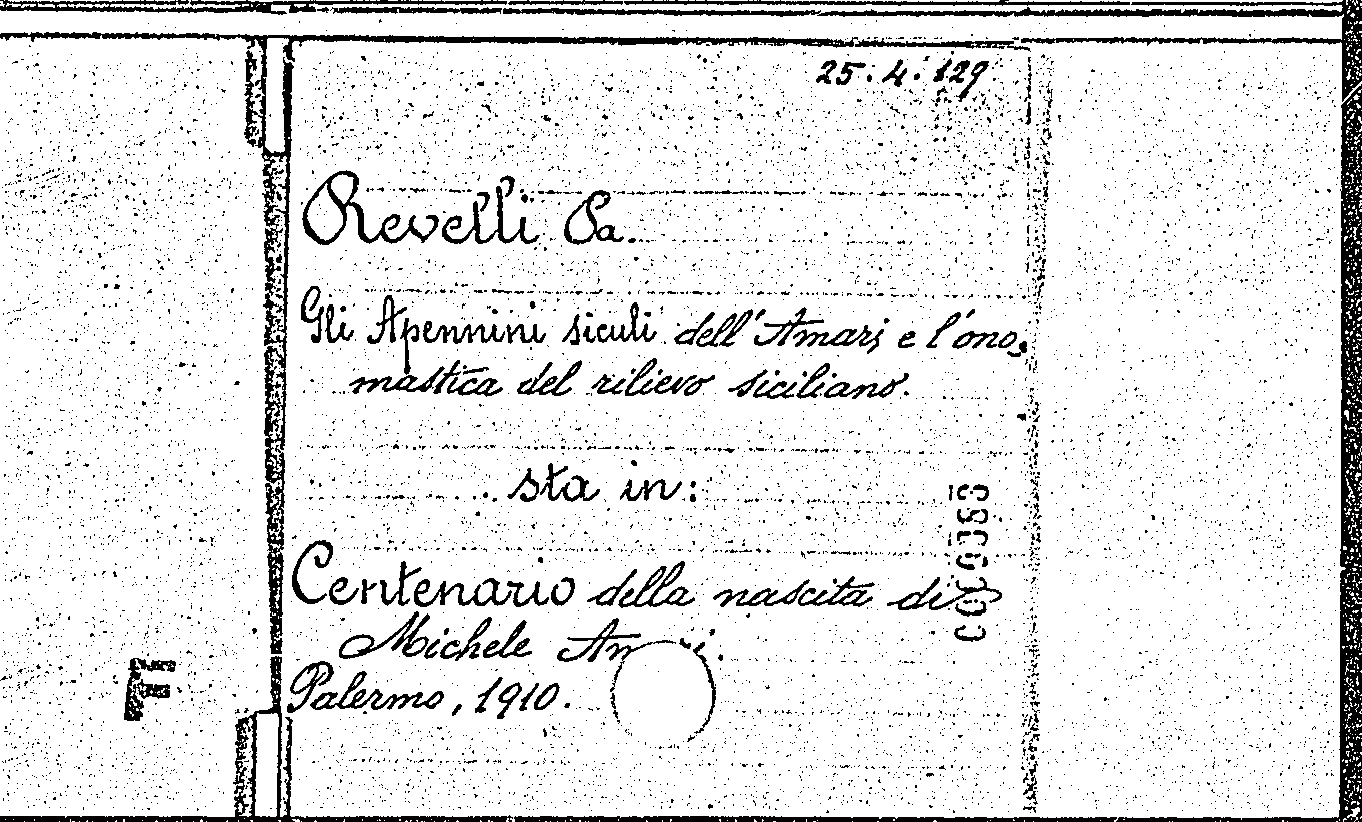 25.4.129
Revelli Pa.
Gli Apennini siculi dell'Amari e l'ono-
mastica del rilievo siciliano.
sta in:
Centenario della nascita di
Michele
Palermo, 1910.
F